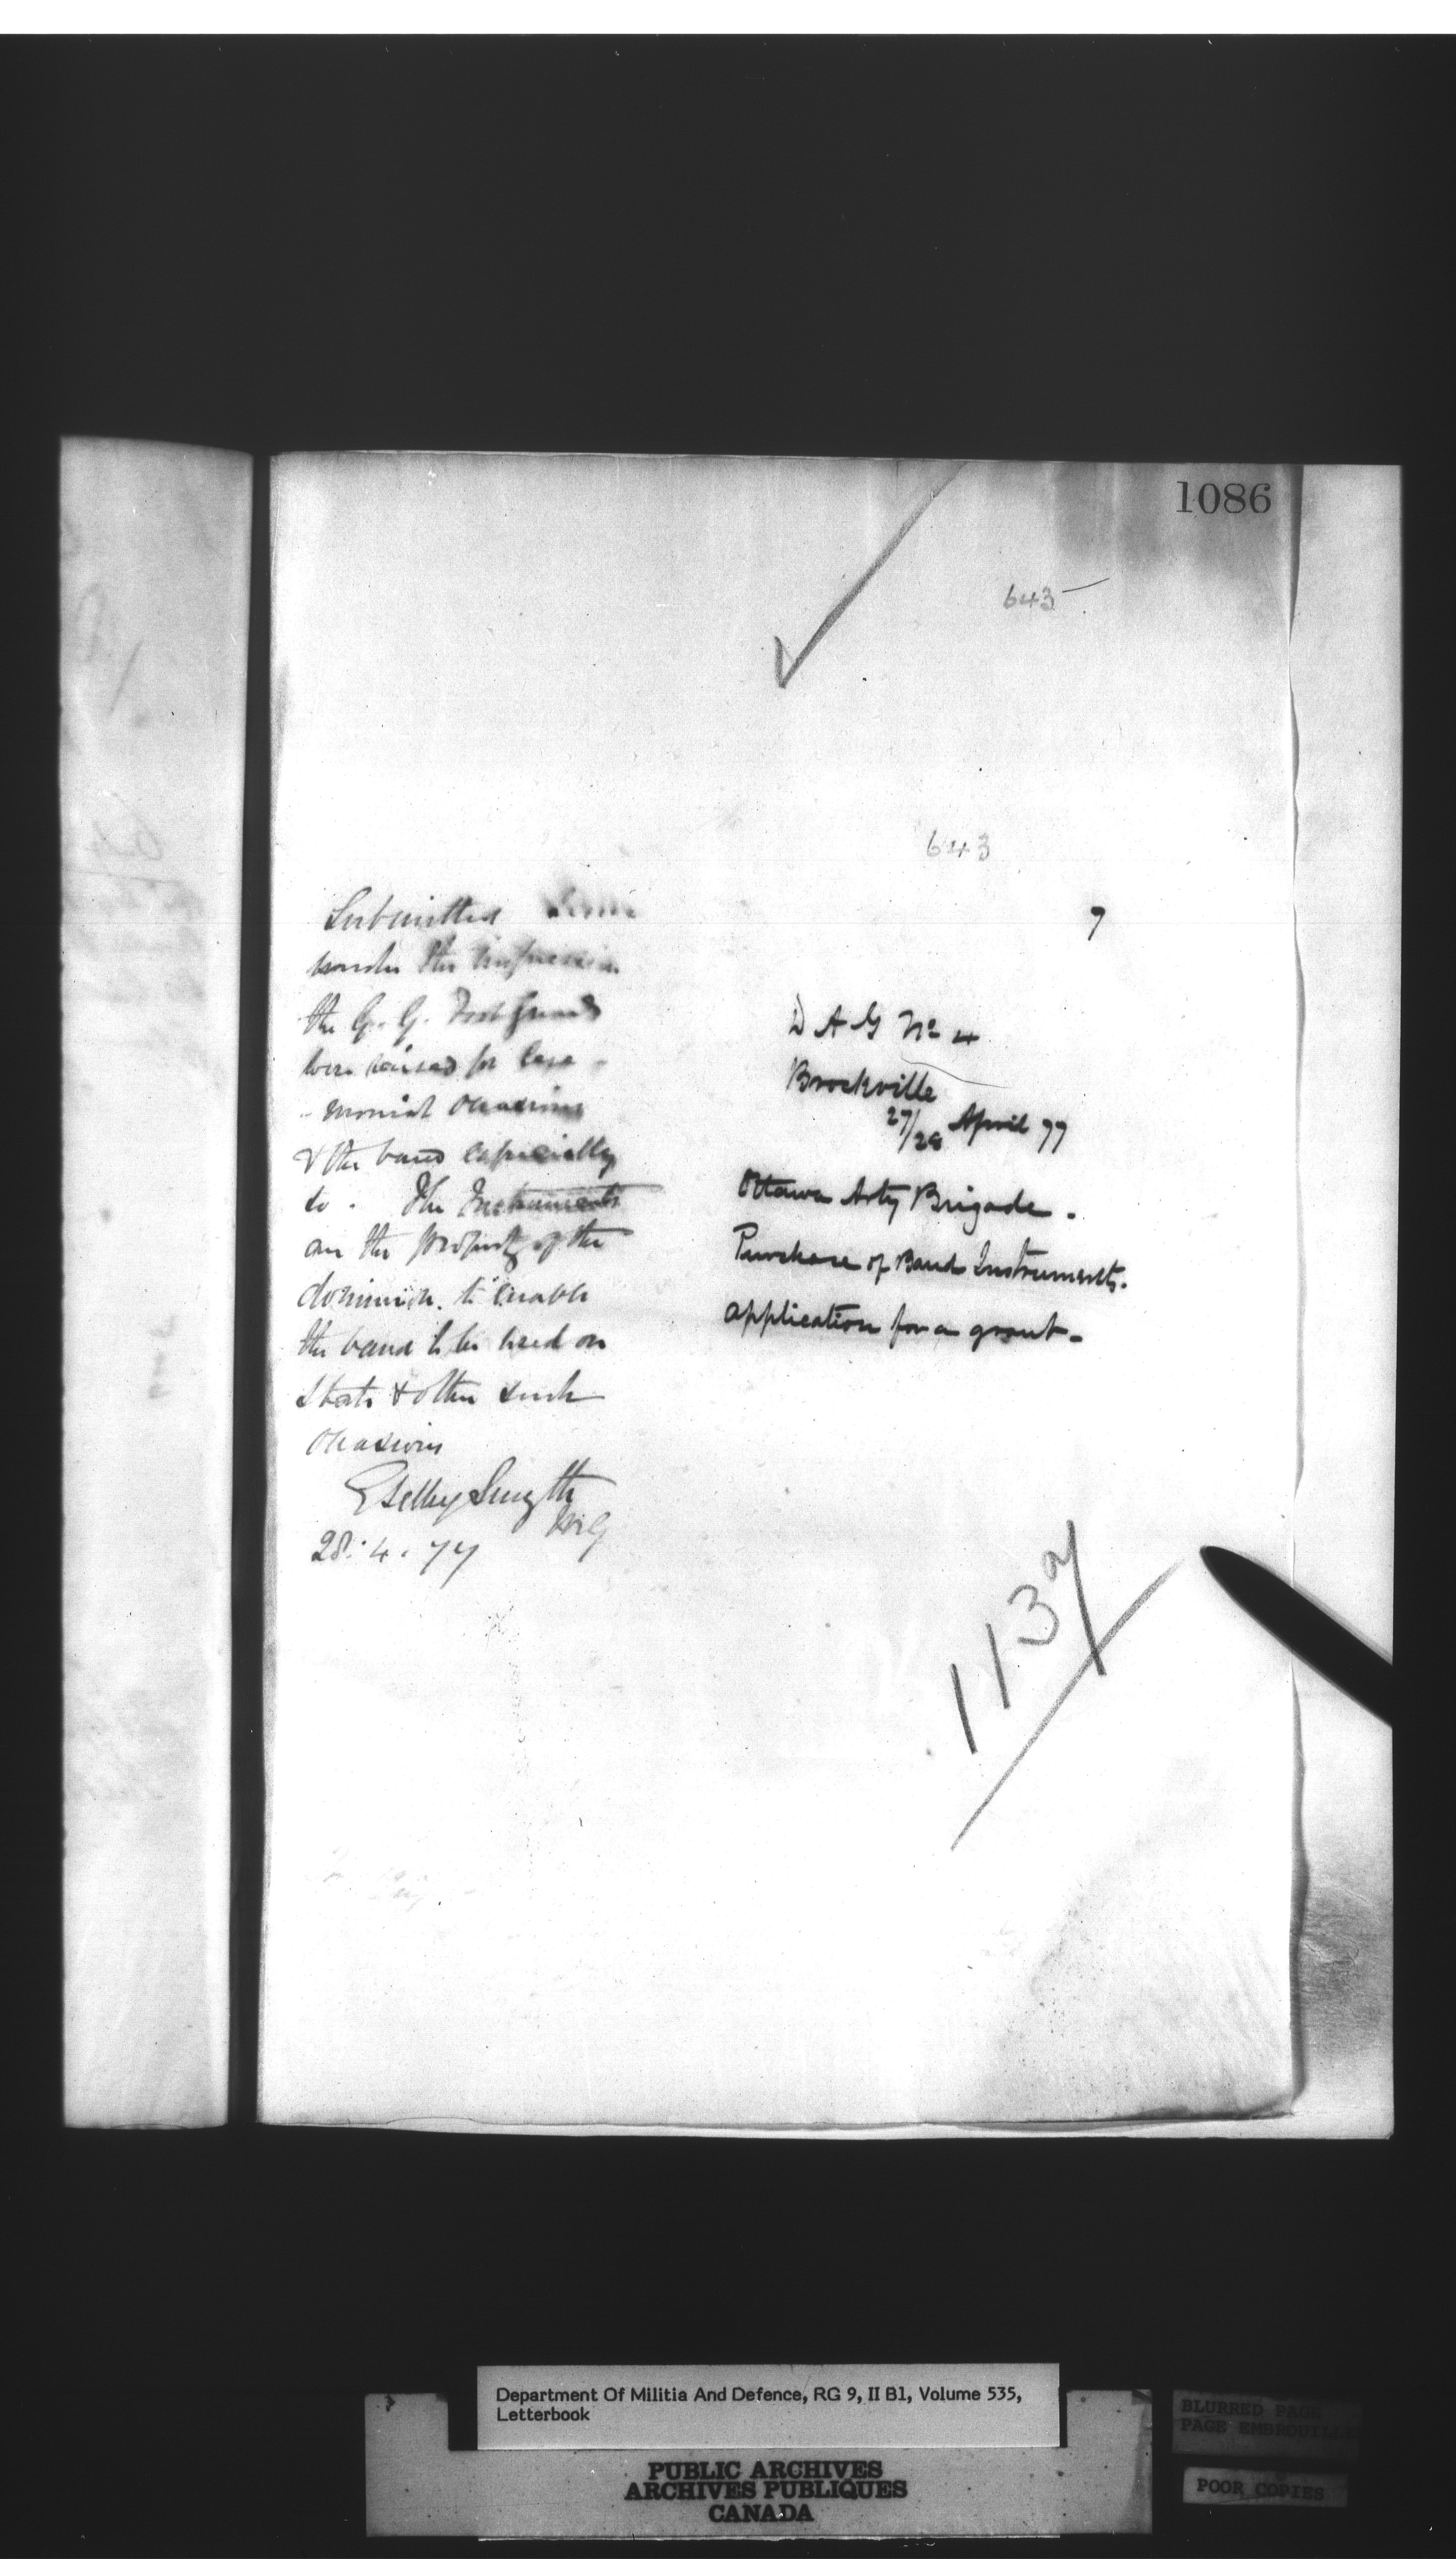 1086
643
643
Submitted
under the impression
the G. G. Foot Guards
were raised for Cere-
-monial occasions
& the band especially
so. The Instruments
are the property of the
dominion. to enable
the band to be used on
State & other such
occasions
E Selby Smyth
M.G
28.4.77
7
D A G No 4
Brockville
27/28 April 77
Ottawa Arty Brigade.
Purchase of Band Instruments.
application for a grant.
1137
Department Of Militia And Defence, RG 9, II B1, Volume 535,
Letterbook
PUBLIC ARCHIVES
ARCHIVES PUBLIQUES
CANADA
BLURRED PAGE
PAGE EMBROUILLÉE
POOR COPIES